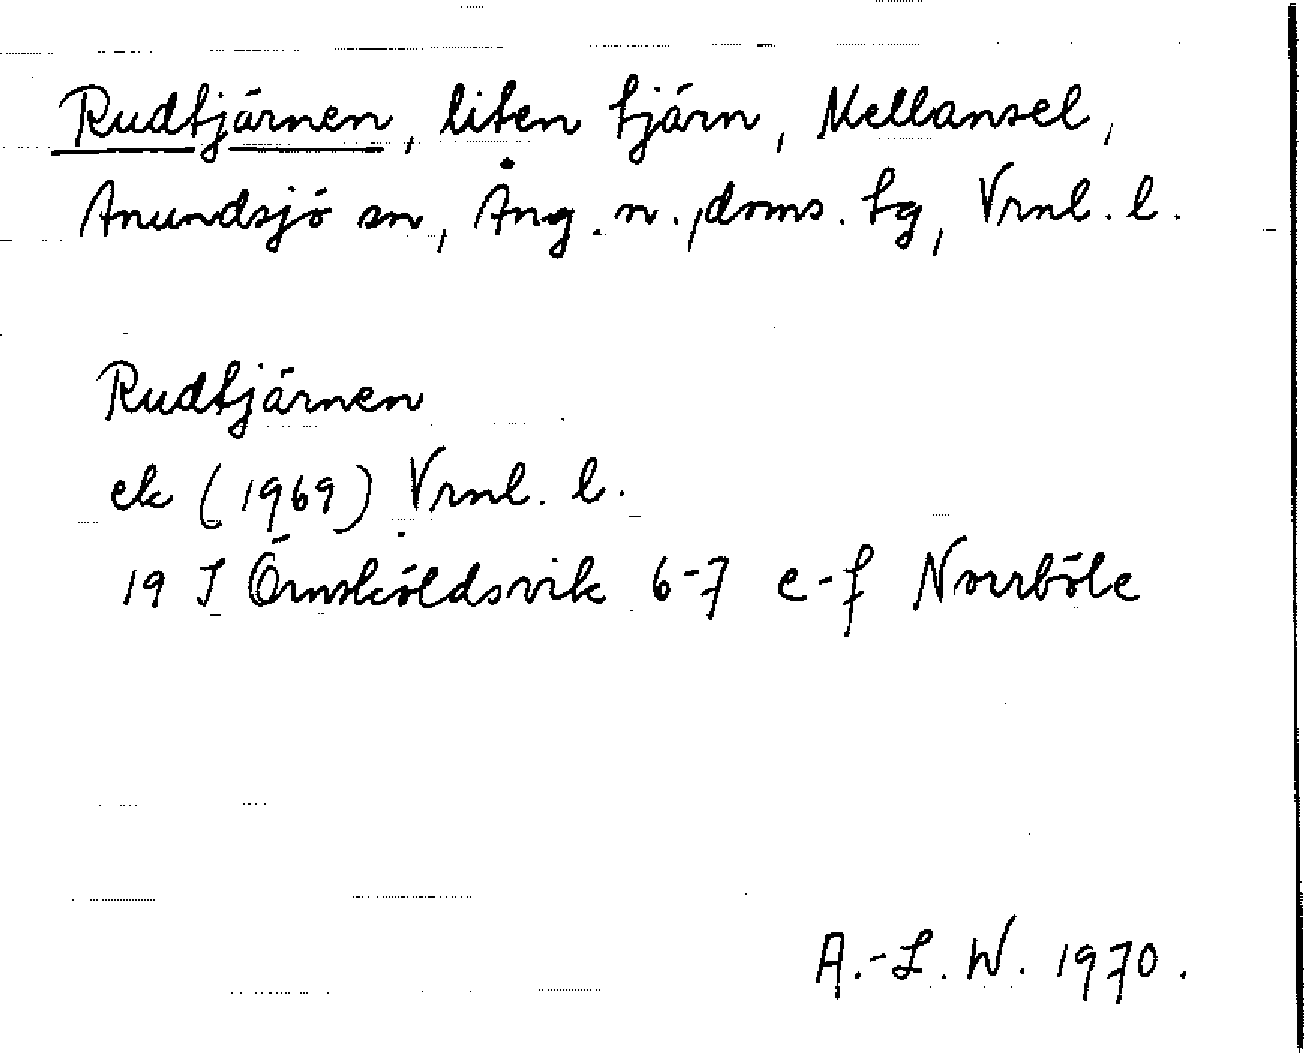 Rudtjärnen, liten tjärn, Mellansel,
Anundsjö sn, Ång. n., doms. tg, Vrnl. l.
Rudtjärnen
ek (1969) Vrnl. l.
19 J Örnsköldsvik 6-7 e-f Norrböle
A.-L. W. 1970.